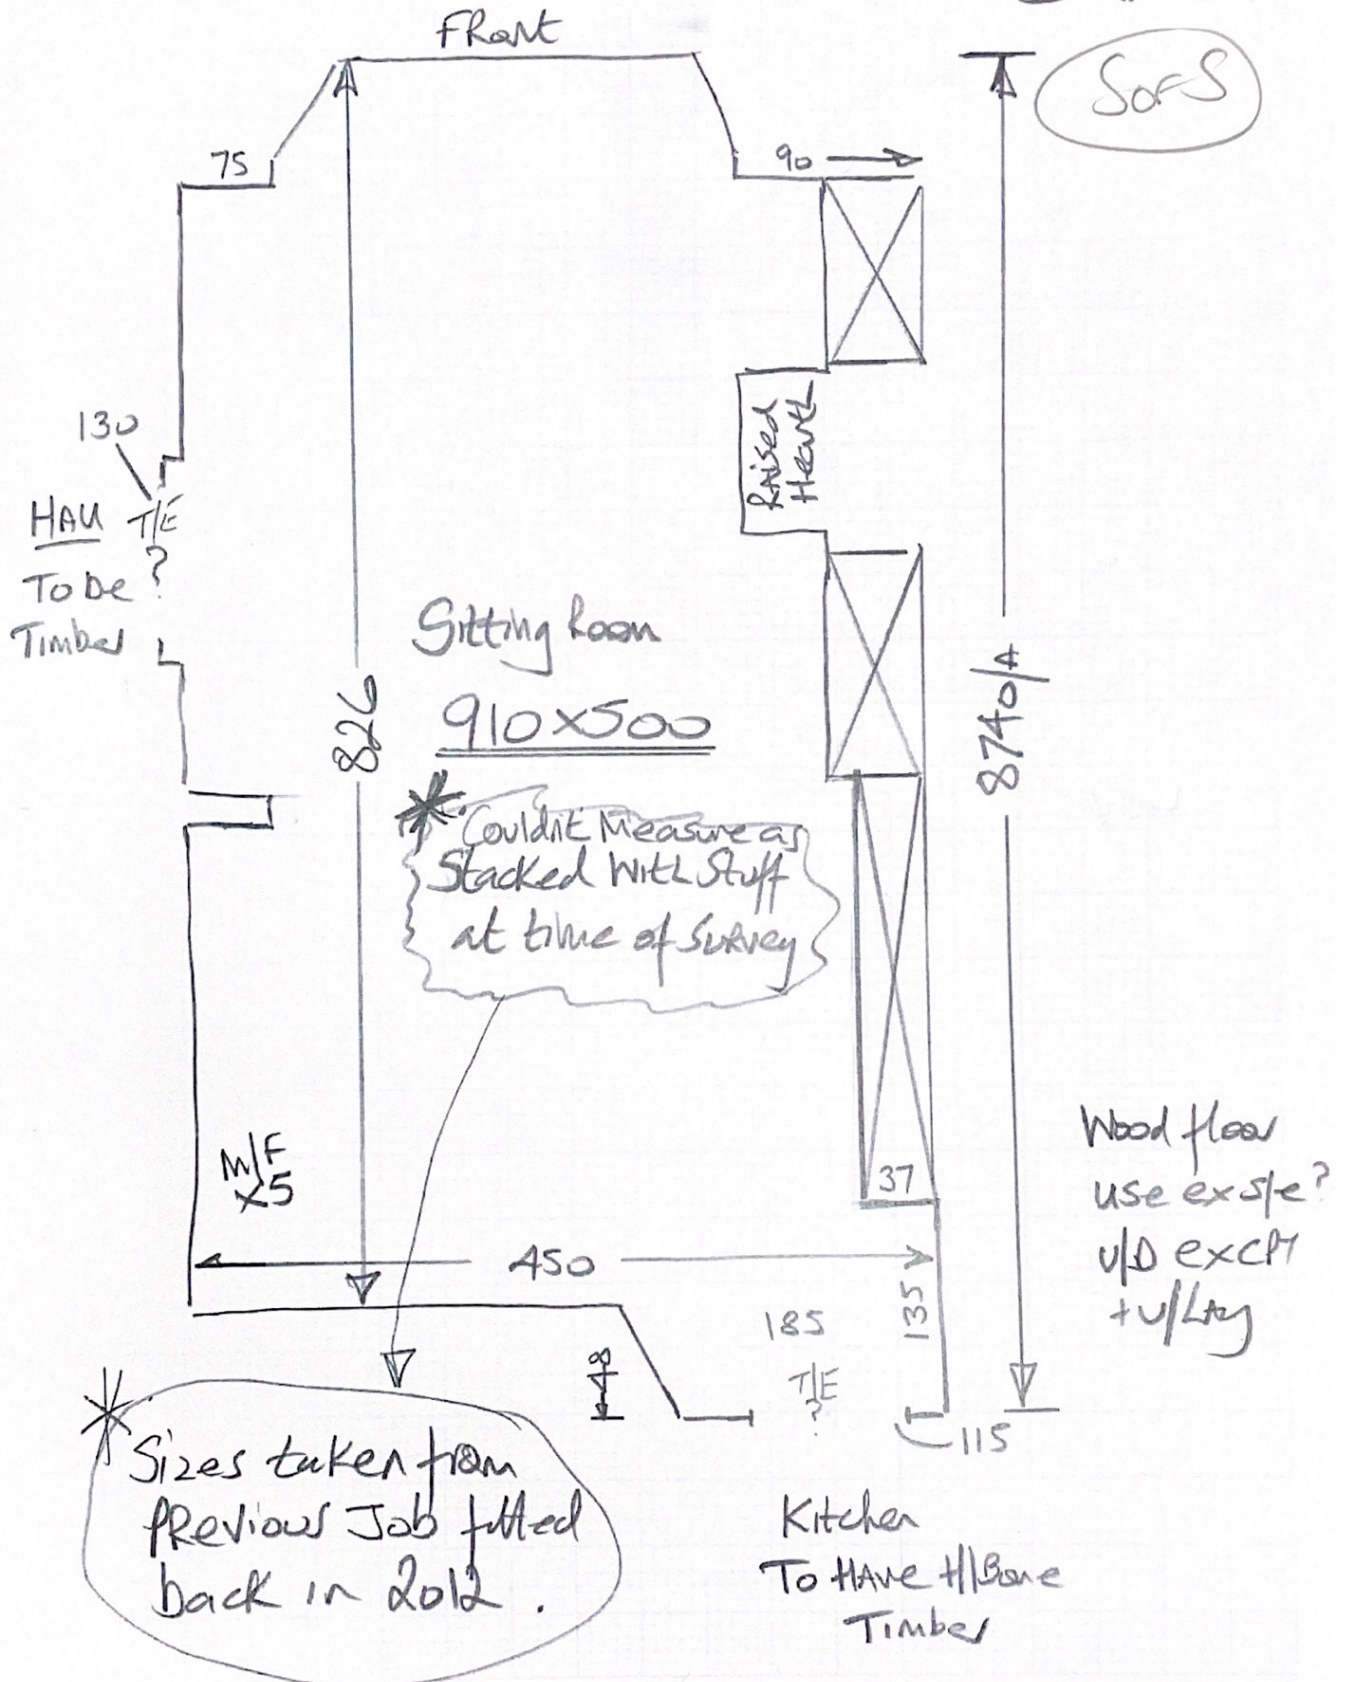 Front
SofS
75
90
130
HALL T/E
?
To be
Timber
Raised
Hearth
Sitting Room
910x500
826
8740/A
* Couldn't Measure as
Stacked With Stuff
at time of Survey
M/F
x5
37
450
135
185
T/E
?
115
Wood floor
use ex s/e?
U/D ex CPT
+ U/Lay
* Sizes taken from
Previous Job fitted
back in 2012.
Kitchen
To Have H/Bone
Timber